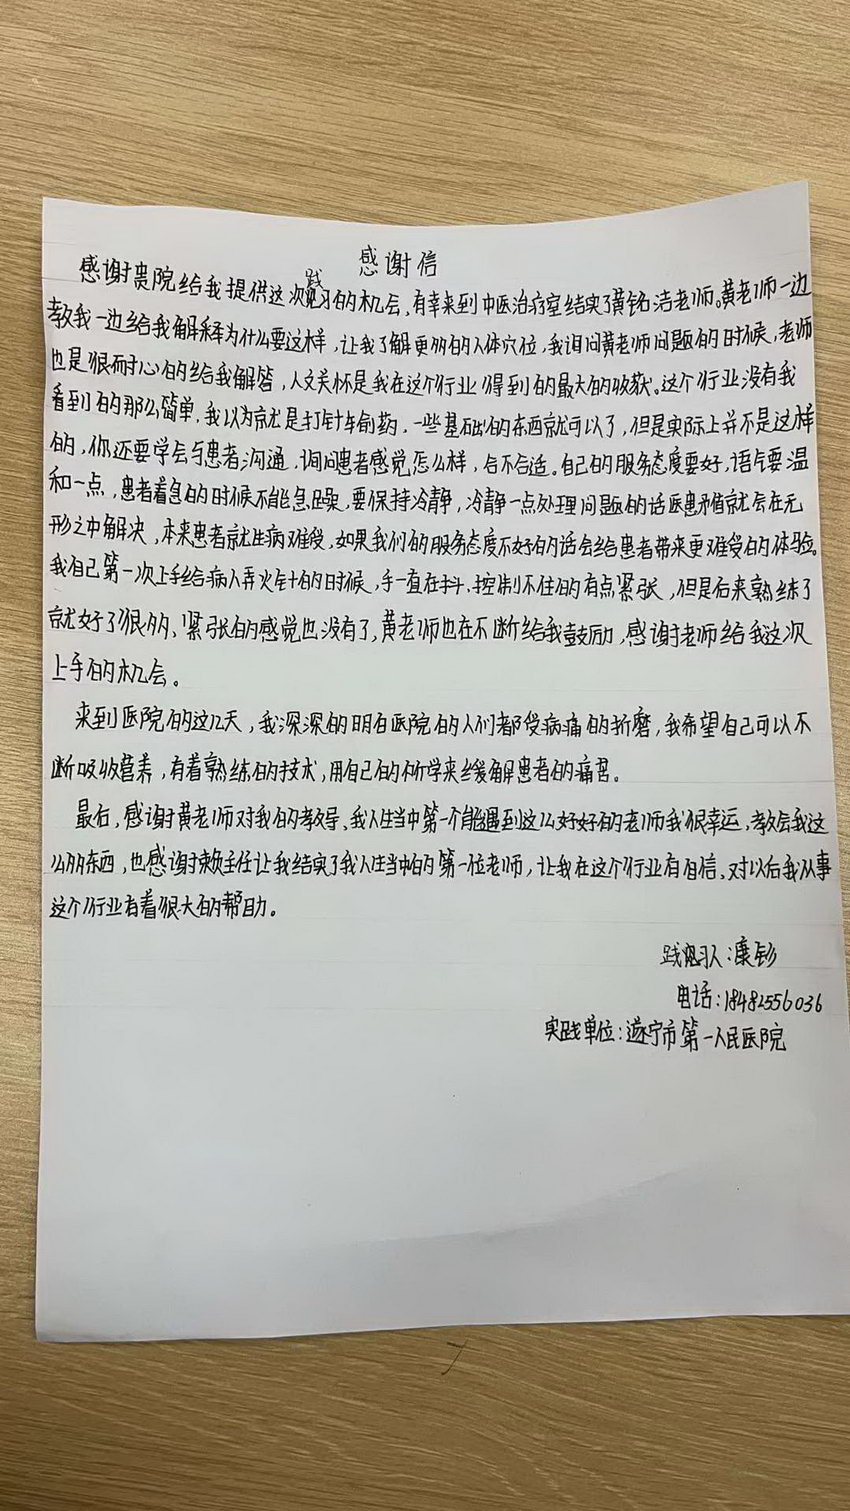 感谢信
感谢贵院给我提供这次践习的机会,有幸来到中医治疗室结实了黄铭洁老师。黄老师一边
教我一边给我解释为什么要这样,让我了解更多的人体穴位,我询问黄老师问题的时候,老师
也是很耐心的给我解答,人文关怀是我在这个行业得到的最大的收获。这个行业没有我
看到的那么简单,我以为就是打针车制药,一些基础的东西就可以了,但是实际上并不是这样
的,你还要学会与患者沟通,询问患者感觉怎么样,合不合适。自己的服务态度要好,语气要温
和一点,患者着急的时候不能急躁,要保持冷静,冷静一点处理问题的话医患矛盾就会在无
形之中解决,本来患者就生病难受,如果我们的服务态度不好的话会给患者带来更难受的体验。
我自己第一次上手给病人弄火针的时候,手一直在抖、控制不住的有点紧张,但是后来熟练了
就好了很多、紧张的感觉也没有了,黄老师也在不断给我鼓励,感谢老师给我这次
上手的机会。
来到医院的这几天,我深深的明白医院的人们都受病痛的折磨,我希望自己可以不
断吸收营养,有着熟练的技术,用自己的所学来缓解患者的痛苦。
最后,感谢黄老师对我的教导、我人生当中第一个能遇到这么好好的老师我很幸运,教会我这
么多东西,也感谢赖主任让我结实了我人生当中的第一位老师,让我在这个行业有自信、对以后我从事
这个行业有着很大的帮助。
践习人:康钐
电话:18482556036
实践单位:遂宁市第一人民医院